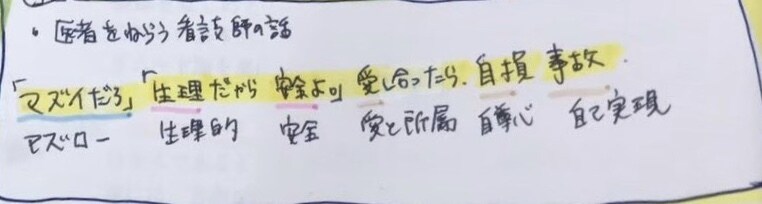 ・医者をねらう看護師の話
「マズイだろ」「生理だから安全よ」愛し合ったら、自損事故
マズロー 生理的 安全 愛と所属 自尊心 自己実現